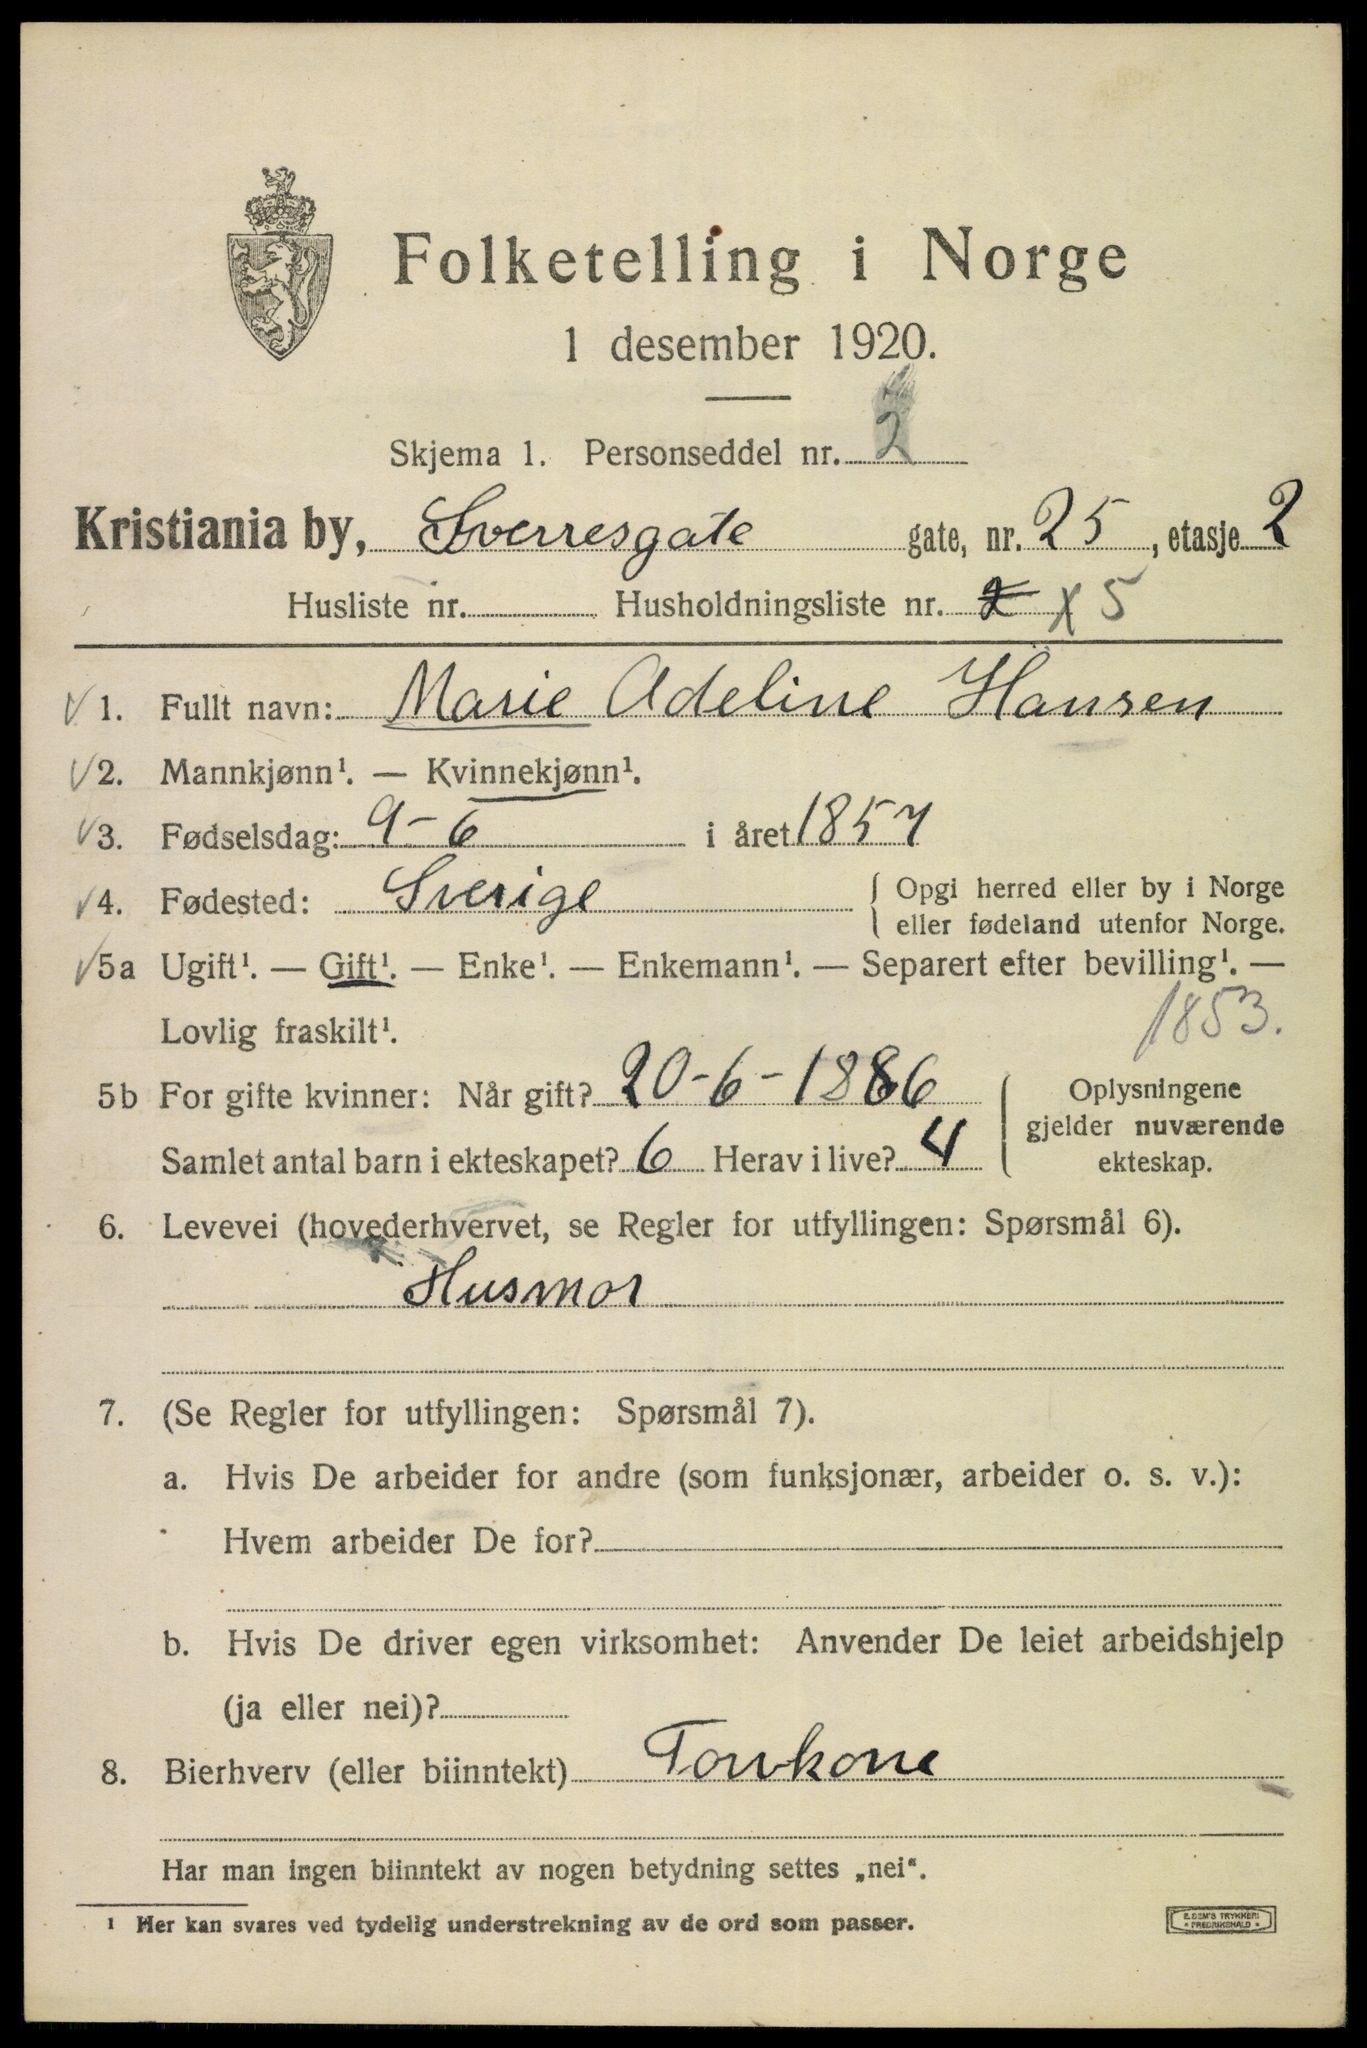 Folketelling i Norge
1 desember 1920.
Skjema 1. Personseddel nr. 2
Kristiania by, Sverresgate gate, nr. 25, etasje 2
Husliste nr. Husholdningsliste nr. 2 x 5
√ 1. Fullt navn: Marie Adeline Hansen
√ 2. Mannkjønn¹. — Kvinnekjønn¹.
√ 3. Fødselsdag: 9-6 i året 1857
√ 4. Fødested: Sverige { Opgi herred eller by i Norge
eller fødeland utenfor Norge.
√ 5a Ugift¹. — Gift¹. — Enke¹. — Enkemann¹. — Separert efter bevilling¹. —
Lovlig fraskilt¹. 1853.
5b For gifte kvinner: Når gift? 20-6-1886 { Oplysningene
gjelder nuværende
Samlet antal barn i ekteskapet? 6 Herav i live? 4 ekteskap.
6. Levevei (hovederhvervet, se Regler for utfyllingen: Spørsmål 6).
Husmor
7. (Se Regler for utfyllingen: Spørsmål 7).
a. Hvis De arbeider for andre (som funksjonær, arbeider o. s. v.):
Hvem arbeider De for?
b. Hvis De driver egen virksomhet: Anvender De leiet arbeidshjelp
(ja eller nei)?
8. Bierhverv (eller biinntekt) Torvkone
Har man ingen biinntekt av nogen betydning settes „nei“.
¹ Her kan svares ved tydelig understrekning av de ord som passer.
E. SEM'S TRYKKERI
* FREDRIKSHALD *